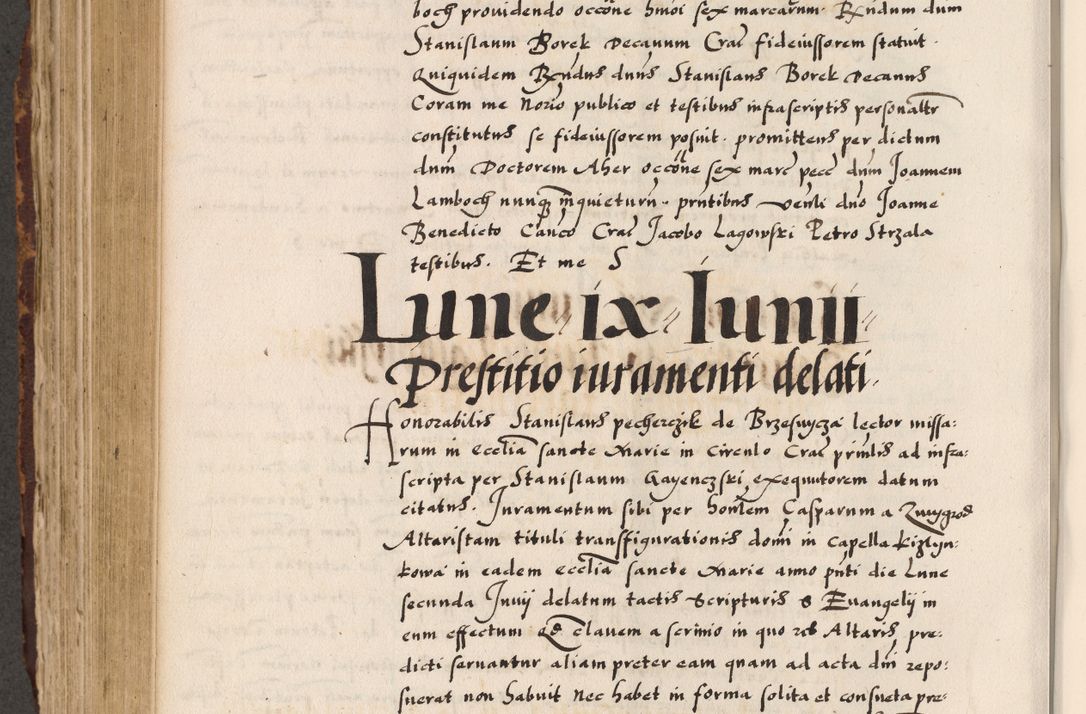 boch providendo occōne hmoi sex marcarum. Rxndum dum
Stanislaum Borek Decanum Crac̄ fideiussorem statuit.
Quiquidem Rxndus dnus Stanislaus Borek Decanus
Coram me Norio publico et testibus infrascriptis personaltr
constitutus se fideiussorem posuit. promittens per dictum
dnm̄ Doctorem Aher occōne sex marc̄ pecc̄ dnm̄ Joannem
Lamboch nunq̄ inquietum. pn̄tibus venli dno Joanne
Benedicto Canco Crac̄ Jacobo Lagowski Petro Strzala
testibus. Et me S
Lune ix Iunii
Prestitio iuramenti delati.
Honorabilis Stanislaus pecherczik de Brzeswycza lector missa:
rum in ecclīa sancte Marie in Circulo Crac̄ prin̄lis ad infra:
scripta per Stanislaum Gayenczski exequutorem datum
citatus. Juramentum sibi per hon̄lem Casparum a Zmygrod
Altaristam tituli transfigurationis domi in Capella kizlyn:
kowa in eadem ecclīa sancte Marie anno pn̄ti die Lune
secunda Junij delatum tactis Scripturis S Evangelij in
eum effectum Qd clavem a scrinio in quo res Altaris pre:
dicti servantur aliam preter eam quam ad acta dni repo:
suerat non habuit nec habet in forma solita et consueta pre: